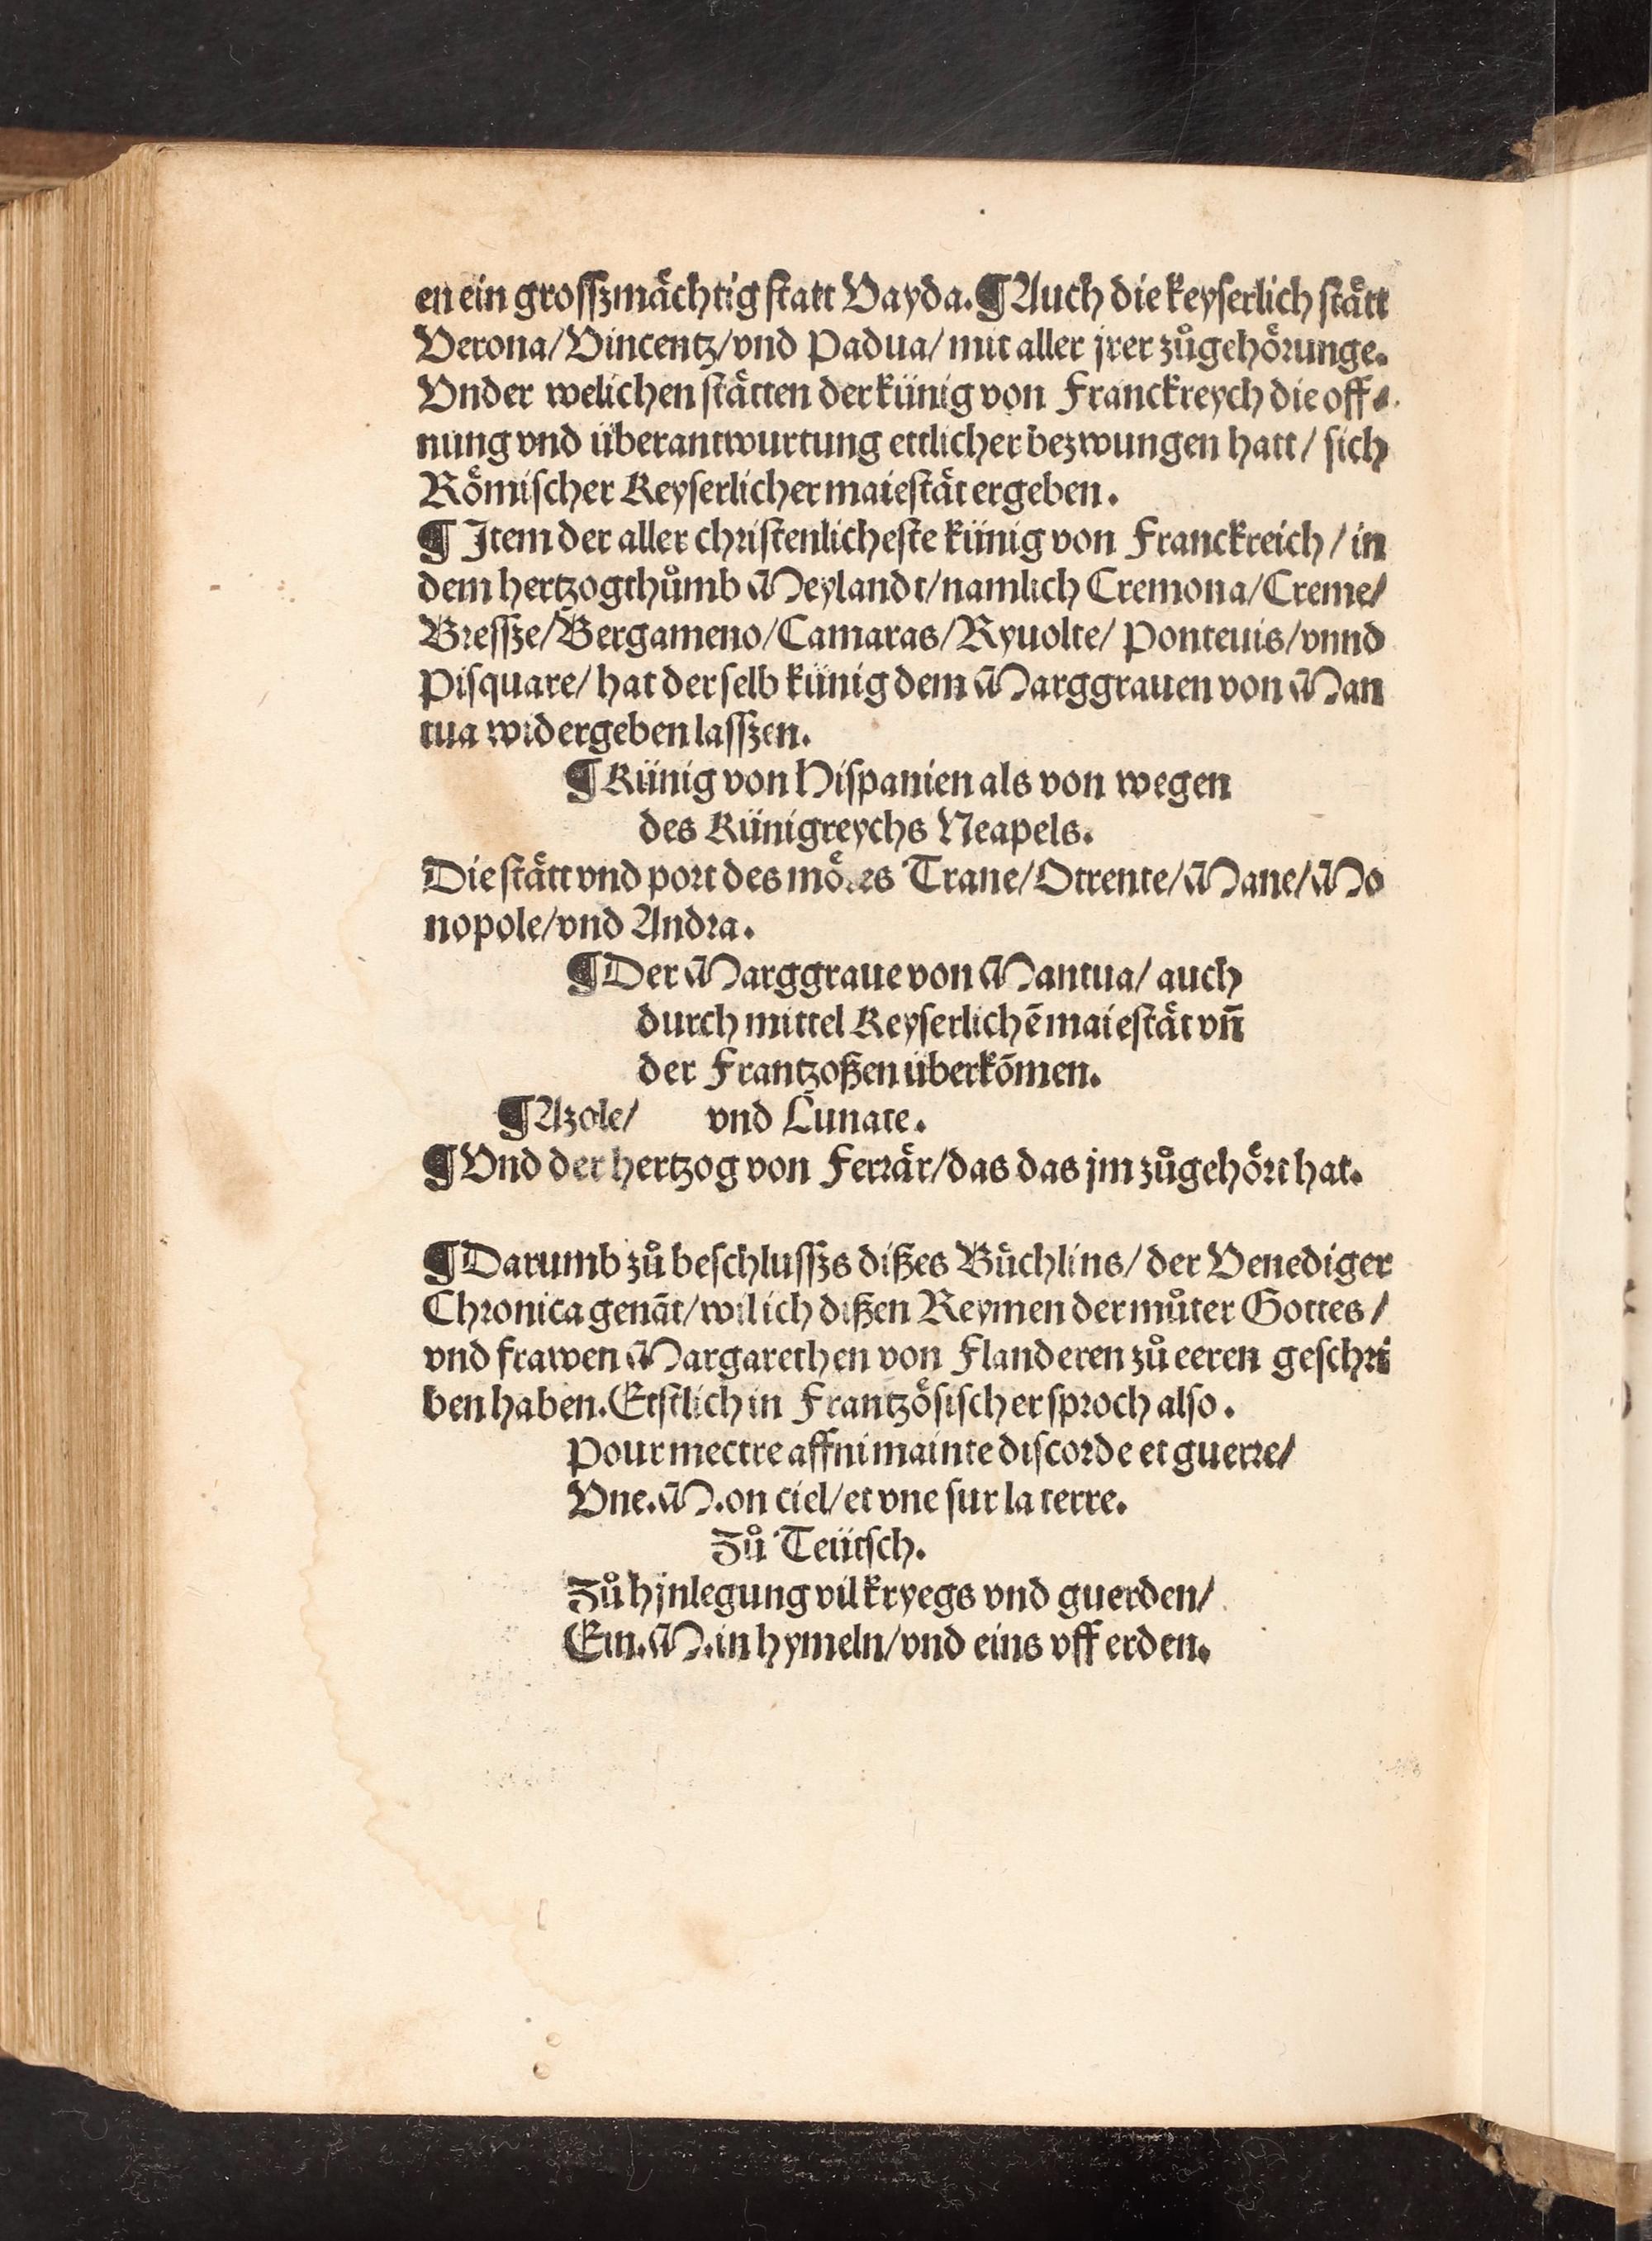 en ein grosſzmaͤchtig ſtatt Vayda. ¶ Auch die keyſerlich ſtaͤtt
Verona/ Vincentz/ vnd Padua/ mit aller jrer zuͦgehoͤrunge.
Vnder welichen ſtaͤtten der künig von Franckreych die off⸗
nung vnd überantwurtung ettlicher bezwungen hatt/ ſich
Roͤmiſcher Keyſerlicher maieſtaͤt ergeben.
¶ Item der aller chriſtenlicheſte künig von Franckreich/ in
dem hertzogthuͦmb Meylandt/ namlich Cremona/ Creme/
Bresſze/ Bergameno/ Camaras/ Ryuolte/ Ponteuis/ vnnd
Piſquare/ hat der ſelb künig dem Marggrauen von Man
tua widergeben lasſzen.
¶ Künig von Hiſpanien als von wegen
des Künigreychs Neapels.
Die ſtaͤtt vnd port des Trane/ Otrente/ Mane/ Mo
nopole/ vnd Andra.
¶ Der Marggraue von Mantua/ auch
durch mittel Keyſerlichē maieſtaͤt vñ
der Frantzoßen überkōmen.
¶ Azole/ vnd Lunate.
¶ Vnd der hertzog von Ferraͤr/ das das jm zuͦgehoͤrt hat.
¶ Darumb zuͦ beſchlusſzs dißes Buͤchlins/ der Venediger
Chronica genāt/ wil ich dißen Reymen der muͦter Gottes/
vnd frawen Margarethen von Flanderen zuͦ eeren geſchri
ben haben. Erſtlich in Frantzoͤsiſcher ſproch alſo.
Pour mectre affni mainte diſcorde et guerre/
Vne. M. on ciel/ et vne ſur la terre.
Zuͦ Teütſch.
Zuͦ hjnlegung vil kryegs vnd guerden/
Ein. M. in hymeln/ vnd eins vff erden.